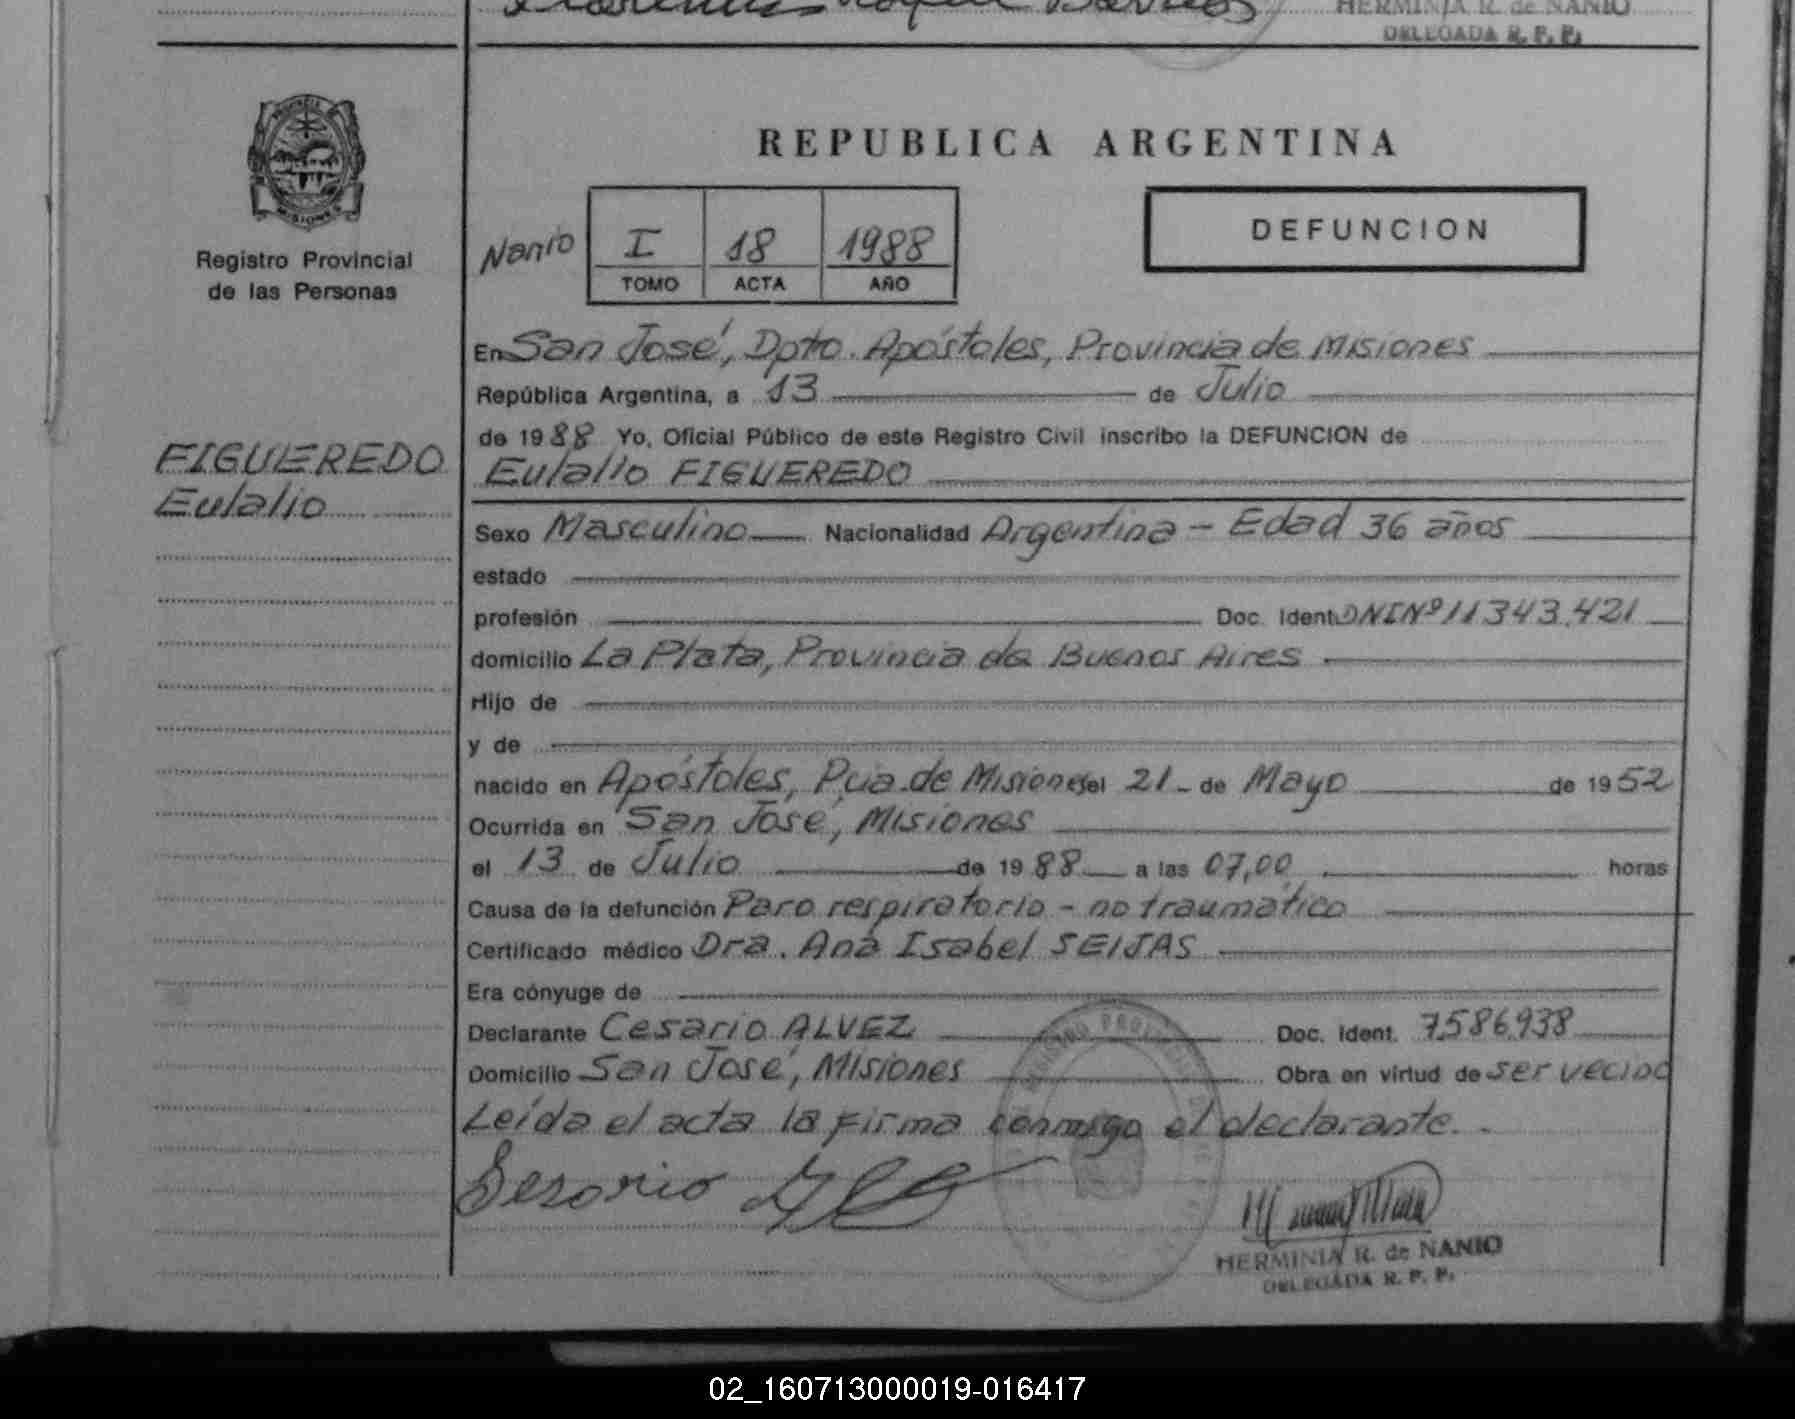 HERMINIA R. de NANIO
DELEGADA R. P. P.
PROVINCIA
MISIONES
Registro Provincial
de las Personas
REPUBLICA ARGENTINA
Nanio
I 18 1988
TOMO ACTA AÑO
DEFUNCION
En San José, Dpto. Apóstoles, Provincia de Misiones
República Argentina, a 13 de Julio
de 1988 Yo, Oficial Público de este Registro Civil inscribo la DEFUNCION de
Eulalio FIGUEREDO
FIGUEREDO
Eulalio
Sexo Masculino Nacionalidad Argentina - Edad 36 años
estado
profesión Doc. Ident. DNI Nº 11343.421
domicilio La Plata, Provincia de Buenos Aires
Hijo de
y de
nacido en Apóstoles, Pcia. de Misiones el 21 - de Mayo de 1952
Ocurrida en San José, Misiones
el 13 de Julio de 1988 a las 07,00 horas
Causa de la defunción Paro respiratorio - no traumático
Certificado médico Dra. Ana Isabel SEIJAS
Era cónyuge de
Declarante Cesario ALVEZ Doc. Ident. 7.586.938
Domicilio San José, Misiones Obra en virtud de ser vecino
Leída el acta la firma conmigo el declarante.
Sesario
HERMINIA R. de NANIO
DELEGADA R. P. P.
02_160713000019-016417